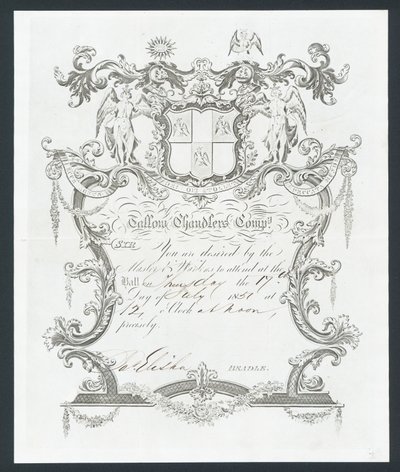 Tallow Chandlers Compy.
SIR
You are desired by the
Master & Wardens to attend at the
Hall on Thursday the 17th
Day of July 1851 at
12, o'Clock at noon,
precisely.
Elisha BEADLE.